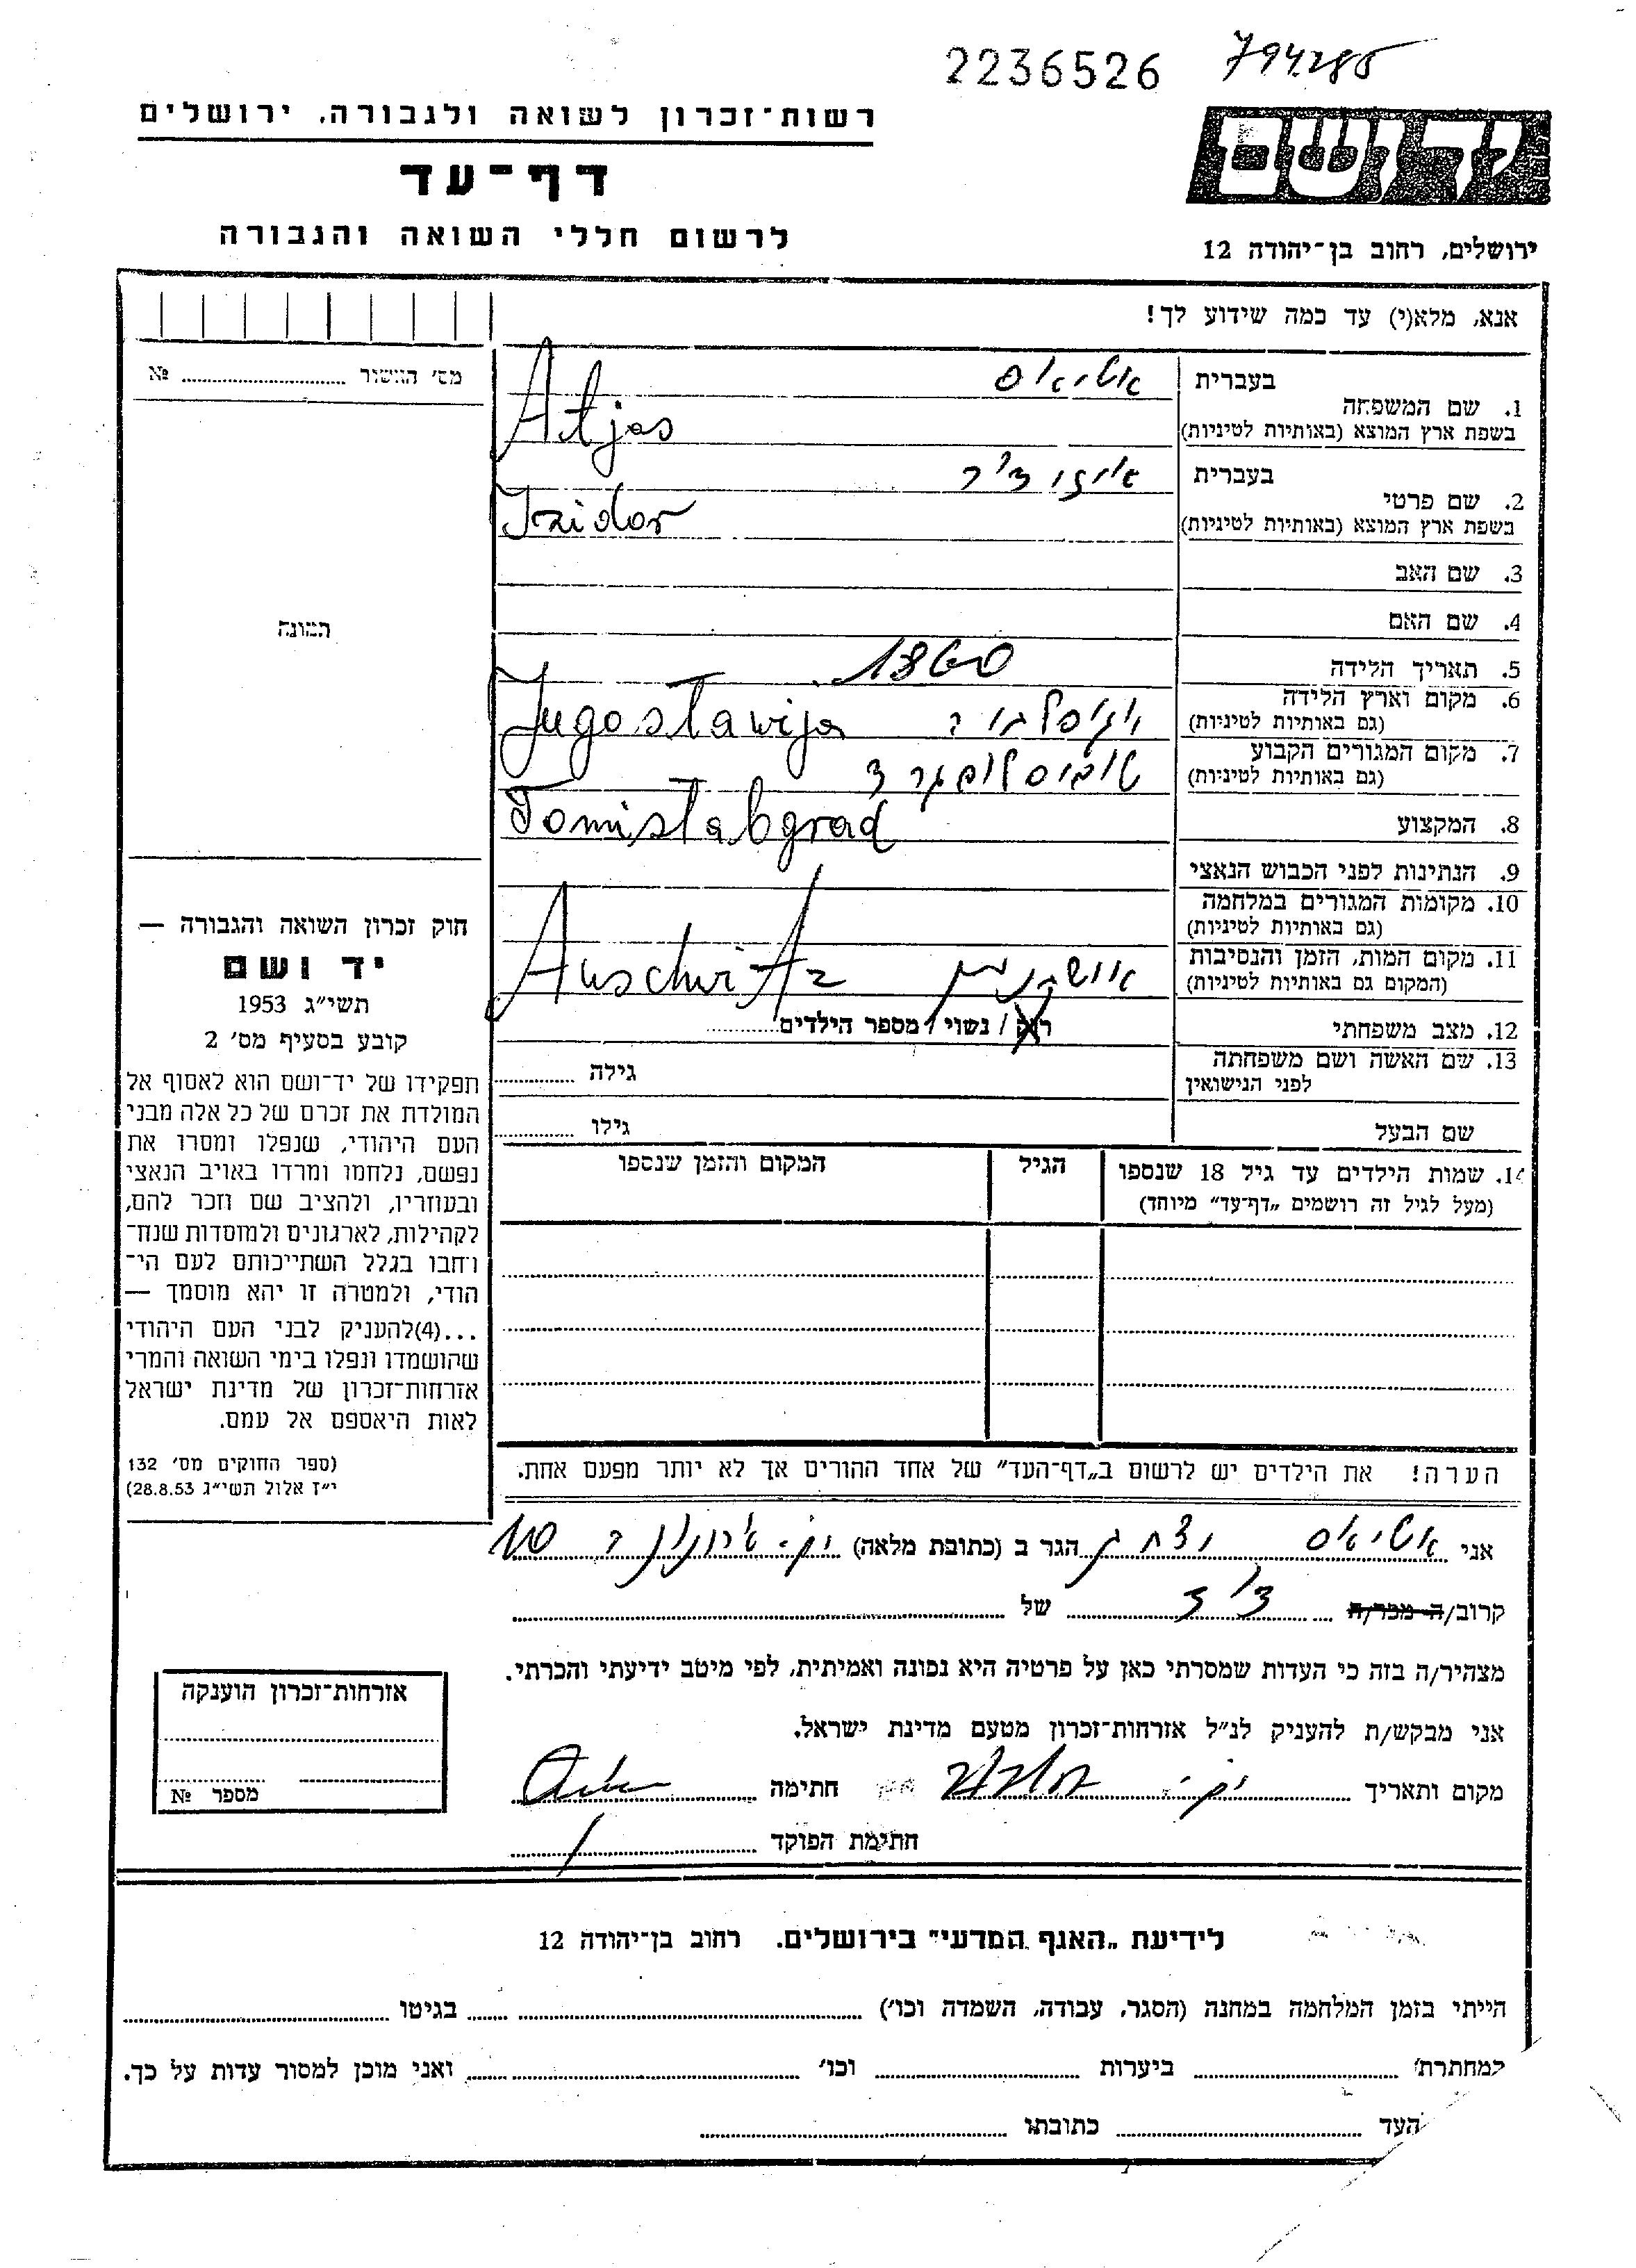 2236526 794285
רשות־זכרון לשואה ולגבורה, ירושלים
דף־עד
לרשום חללי השואה והגבורה
ידושם
ירושלים, רחוב בן־יהודה 12
אנא, מלא(י) עד כמה שידוע לך!
1. שם המשפחה בעברית אטיאס
בשפת ארץ המוצא (באותיות לטיניות) Atjas
2. שם פרטי בעברית איזידור
בשפת ארץ המוצא (באותיות לטיניות) Izidor
3. שם האב
4. שם האם
5. תאריך הלידה 1860
6. מקום וארץ הלידה
(גם באותיות לטיניות) יוגוסלביה Jugoslawija
7. מקום המגורים הקבוע
(גם באותיות לטיניות) טומיסלבגרד
8. המקצוע Tomislabgrad
9. הנתינות לפני הכבוש הנאצי
10. מקומות המגורים במלחמה
(גם באותיות לטיניות)
11. מקום המות, הזמן והנסיבות
(המקום גם באותיות לטיניות) אושוויץ Auschwitz
12. מצב משפחתי רוק / נשוי / מספר הילדים
13. שם האשה ושם משפחתה
לפני הנישואין גילה
שם הבעל גילו
14. שמות הילדים עד גיל 18 שנספו הגיל המקום והזמן שנספו
(מעל לגיל זה רושמים „דף־עד” מיוחד)
הערה! את הילדים יש לרשום ב„דף־העד” של אחד ההורים אך לא יותר מפעם אחת.
מס׳ הגשור №
תמונה
חוק זכרון השואה והגבורה —
יד ושם
תשי״ג 1953
קובע בסעיף מס׳ 2
תפקידו של יד־ושם הוא לאסוף אל
המולדת את זכרם של כל אלה מבני
העם היהודי, שנפלו ומסרו את
נפשם, נלחמו ומרדו באויב הנאצי
ובעוזריו, ולהציב שם וזכר להם,
לקהילות, לארגונים ולמוסדות שנח־
רחבו בגלל השתייכותם לעם הי־
הודי, ולמטרה זו יהא מוסמך —
...(4)להעניק לבני העם היהודי
שהושמדו ונפלו בימי השואה והמרי
אזרחות־זכרון של מדינת ישראל
לאות היאספם אל עמם.
(ספר החוקים מס׳ 132
י״ז אלול תשי״ג 28.8.53)
אני אטיאס יצחק הגר ב (כתובת מלאה)
קרוב/ה מכר/ה דוד של
מצהיר/ה בזה כי העדות שמסרתי כאן על פרטיה היא נכונה ואמיתית, לפי מיטב ידיעתי והכרתי.
אני מבקש/ת להעניק לנ״ל אזרחות־זכרון מטעם מדינת ישראל.
מקום ותאריך חתימה
חתימת הפוקד
אזרחות־זכרון הוענקה
מספר №
לידיעת „האגף המדעי” בירושלים. רחוב בן־יהודה 12
הייתי בזמן המלחמה במחנה (הסגר, עבודה, השמדה וכו׳) בגיטו
למחתרת׳ ביערות וכו׳ ואני מוכן למסור עדות על כך.
העד כתובתו